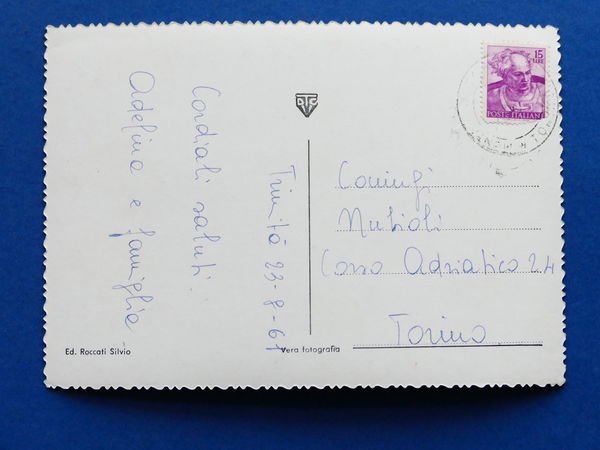 Trinità 23-8-61
Cordiali saluti!
Adelina e famiglia
15
LIRE
POSTE ITALIANE
Coniugi
Nubioli
Corso Adriatico 24
Torino
Ed. Roccati Silvio
Vera fotografia